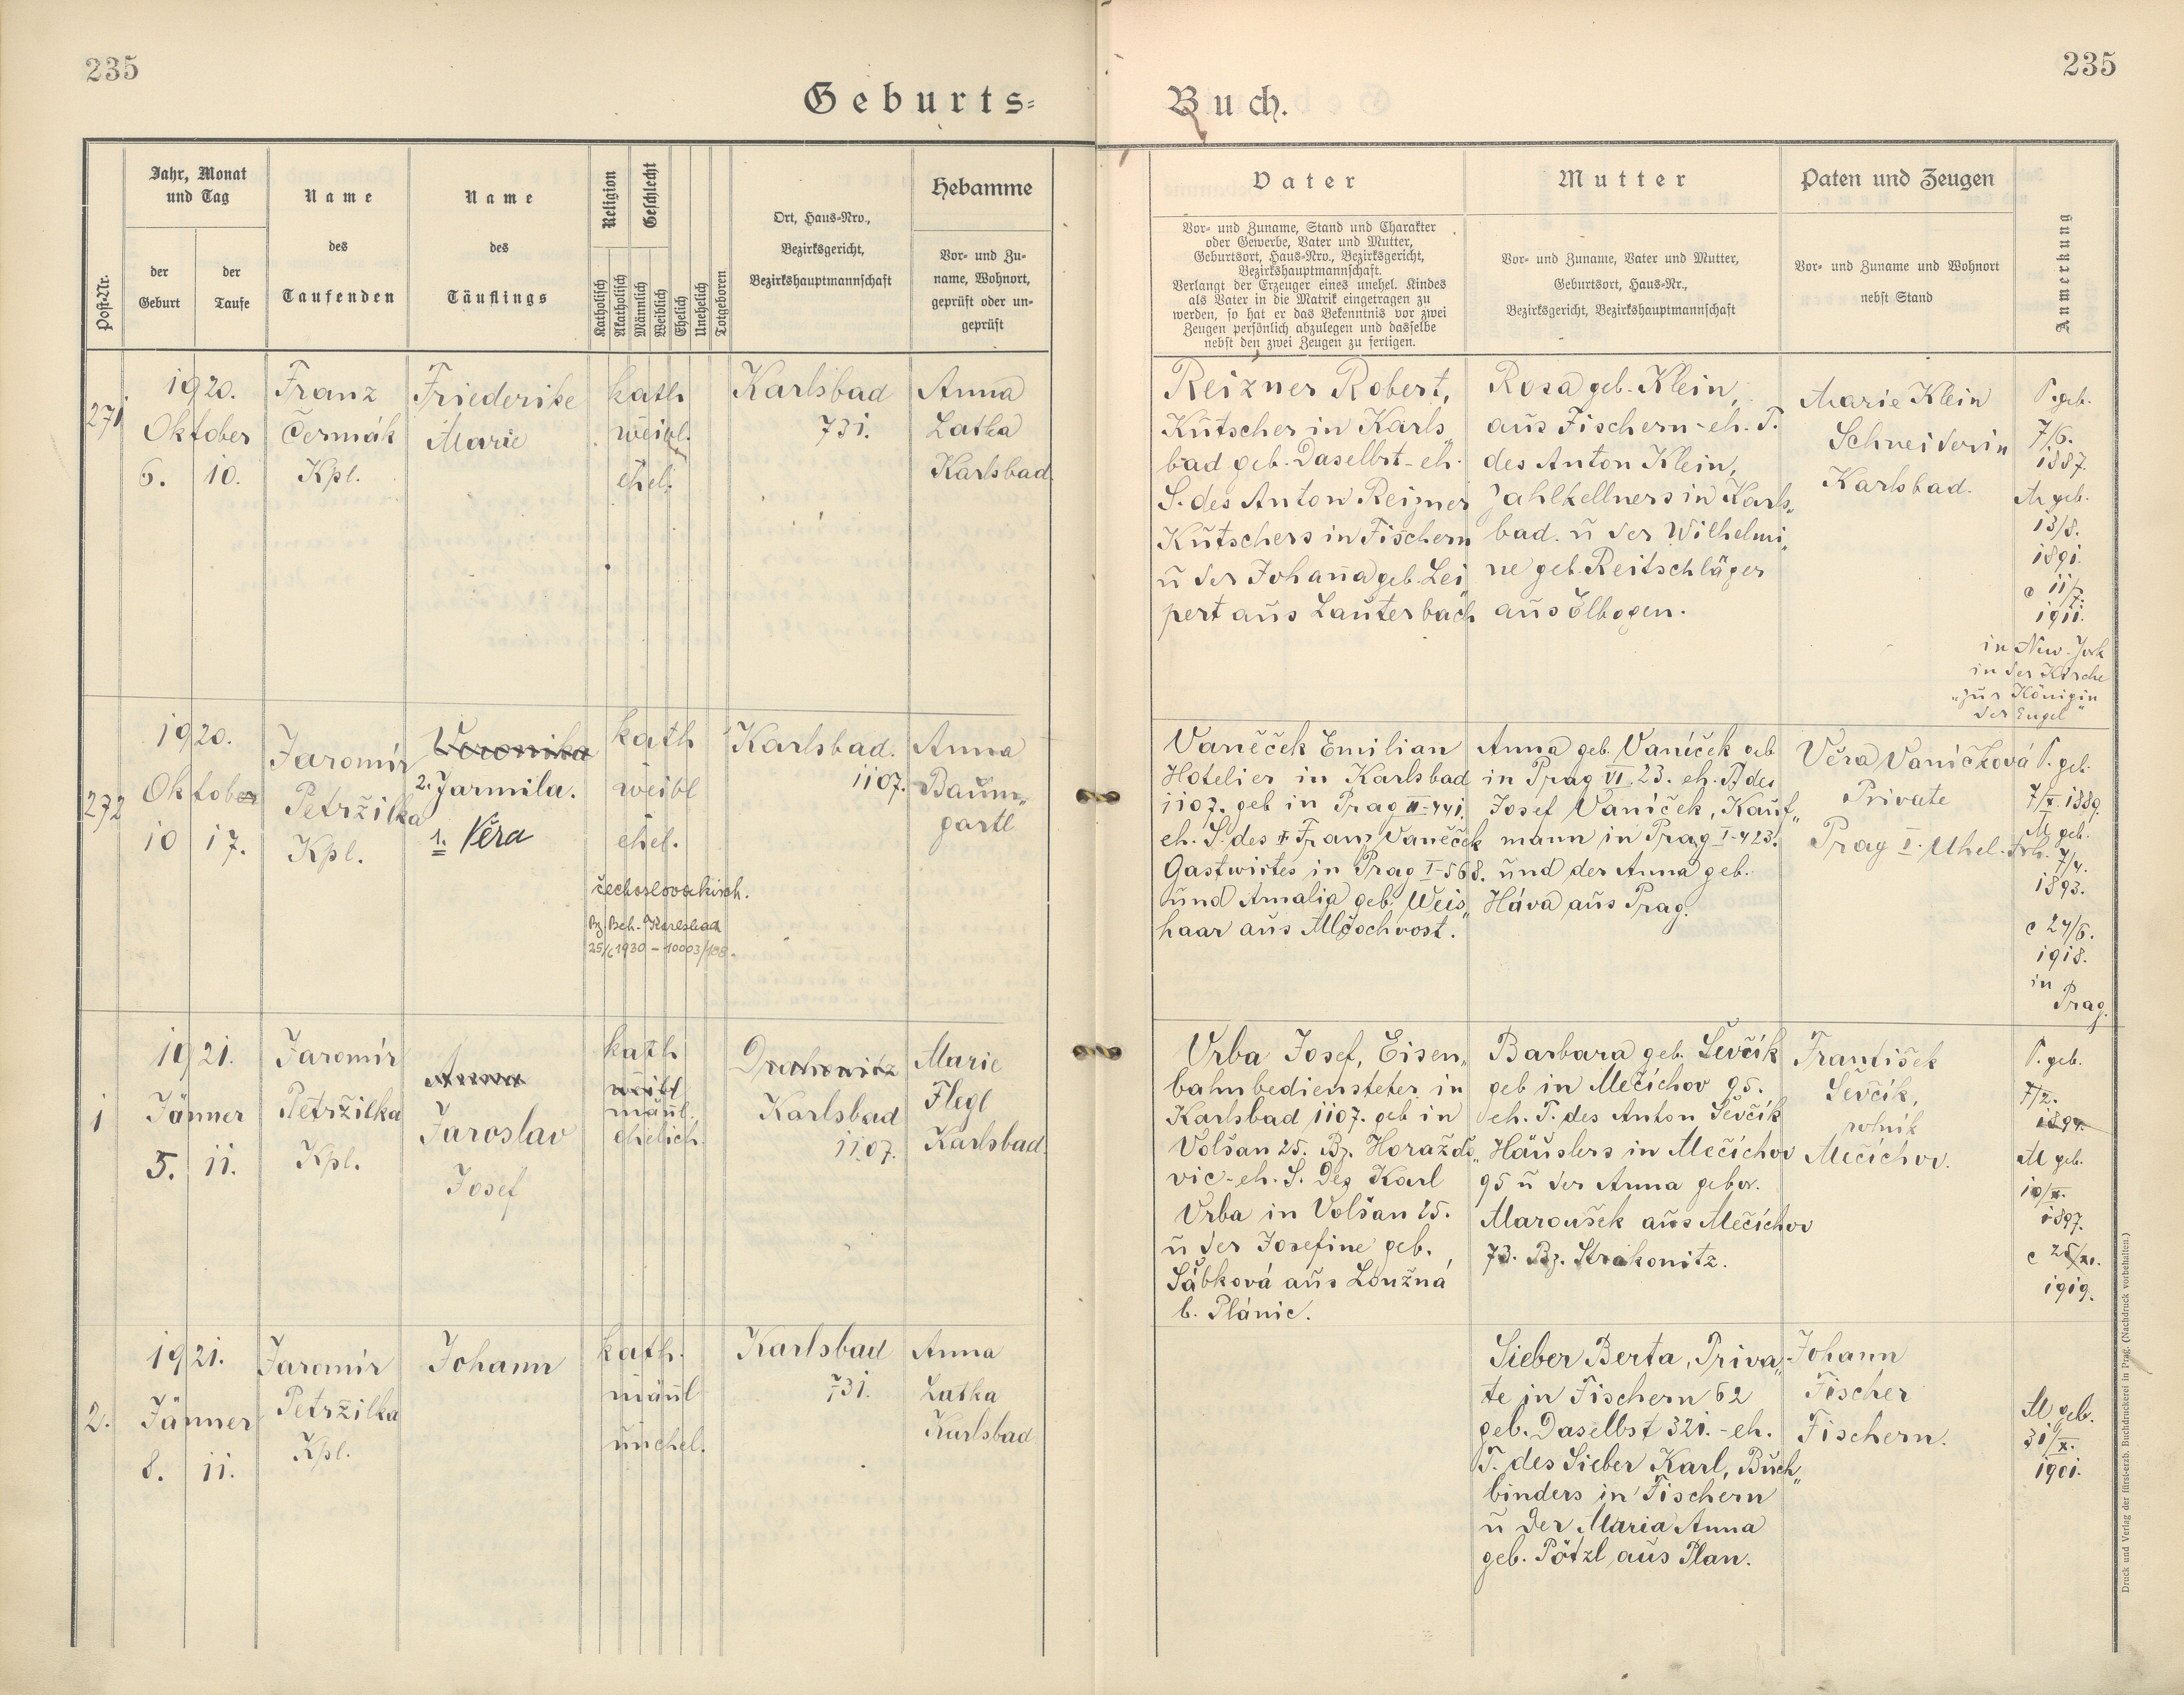 235
235
Geburts=
Buch.
Post-Nr.
Jahr, Monat
und Tag
der
Geburt
der
Taufe
Name
des
Taufenden
Name
des
Täuflings
Religion
Geschlecht
Katholisch
Akatholisch
Männlich
Weiblich
Ehelich
Unehelich
Totgeboren
Ort, Haus-Nro.,
Bezirksgericht,
Bezirkshauptmannschaft
Hebamme
Vor- und Zu-
name, Wohnort,
geprüft oder un-
geprüft
Vater
Vor- und Zuname, Stand und Charakter
oder Gewerbe, Vater und Mutter,
Geburtsort, Haus-Nro., Bezirksgericht,
Bezirkshauptmannschaft.
Verlangt der Erzeuger eines unehel. Kindes
als Vater in die Matrik eingetragen zu
werden, so hat er das Bekenntnis vor zwei
Zeugen persönlich abzulegen und dasselbe
nebst den zwei Zeugen zu fertigen.
Mutter
Vor- und Zuname, Vater und Mutter,
Geburtsort, Haus-Nr.,
Bezirksgericht, Bezirkshauptmannschaft
Paten und Zeugen
Vor- und Zuname und Wohnort
nebst Stand
Anmerkung
271
1920.
Oktober
6. 10.
Franz
Čermák
Kpl.
Friederike
Marie
kath
weibl.
ehel.
Karlsbad
731.
Anna
Latka
Karlsbad.
Reizner Robert,
Kutscher in Karls„
bad geb. Daselbst - eh.
S. des Anton Reizner
Kutschers in Fischern
u der Johanna geb. Lei„
pert aus Lauterbach
Rosa geb. Klein,
aus Fischern - eh. T.
des Anton Klein,
Zahlkellners in Karls„
bad. u der Wilhelmi„
ne geb. Reitschläger
aus Elbogen.
Marie Klein
Schneiderin
Karlsbad.
V. geb.
7/6.
1887.
M geb.
13/8.
1891.
c 11/7.
1911.
in New-York
in der Kirche
„zur Königin
der Engel"
272
1920.
Oktober
10 17.
Jaromír
Petržilka
Kpl.
Veronika
2. Jarmila.
1. Věra
kath
weibl
ehel.
čechoslovakisch.
Bz. Beh. Karlsbad
25/6 1930 - 10003/198.
Karlsbad.
1107.
Anna
Baum„
gartl
Vaněček Emilian
Hotelier in Karlsbad
1107. geb in Prag II-441.
eh. S. des Franz Vaněček
Gastwirtes in Prag I-568.
und Amalia geb. Weis„
haar aus Mšschwost.
Anna geb. Vaníček geb
in Prag VI. 23. eh. T des
Josef Vaníček, Kauf„
mann in Prag I-423.
und der Anna geb.
Háva aus Prag.
Věra Vaníčková
Private
Prag I. Uhel. trh.
V. geb.
7/X. 1889.
M geb.
7/4.
1893.
c 24/6.
1918.
in
Prag.
1
1921.
Jänner
5. 11.
Jaromír
Petržilka
Kpl.
Anna
Jaroslav
Josef
kath
weibl
männl.
ehelich.
Drahowitz
Karlsbad
1107.
Marie
Flegl
Karlsbad.
Vrba Josef, Eisen„
bahnbediensteter in
Karlsbad 1107. geb in
Volšan 25. Bz. Horažďo„
vic - eh. S. Des Karl
Vrba in Volšan 25.
u der Josefine geb.
Sábková aus Loužná
b. Plánic.
Barbara geb. Ševčík
geb in Mečíchov 95.
eh. T. des Anton Ševčík
Häuslers in Mečíchov
95 u der Anna gebor.
Maroušek aus Mečíchov
73. Bz. Strakonitz.
František
Ševčík,
rolník
Mečíchov.
V. geb.
7/2.
1894.
M geb.
10/X.
1897.
c 25/XI.
1919.
2.
1921.
Jänner
8. 11.
Jaromír
Petržilka
Kpl.
Johann
kath.
männl
unehel.
Karlsbad
731.
Anna
Latka
Karlsbad
Sieber Berta, Priva„
te in Fischern 62
geb. Daselbst 321. - eh.
T. des Sieber Karl, Buch„
binders in Fischern
u der Maria Anna
geb. Pötzl aus Plan.
Johann
Fischer
Fischern.
M geb.
31/X.
1901.
Druck und Verlag der fürst-erzb. Buchdruckerei in Prag. (Nachdruck vorbehalten.)